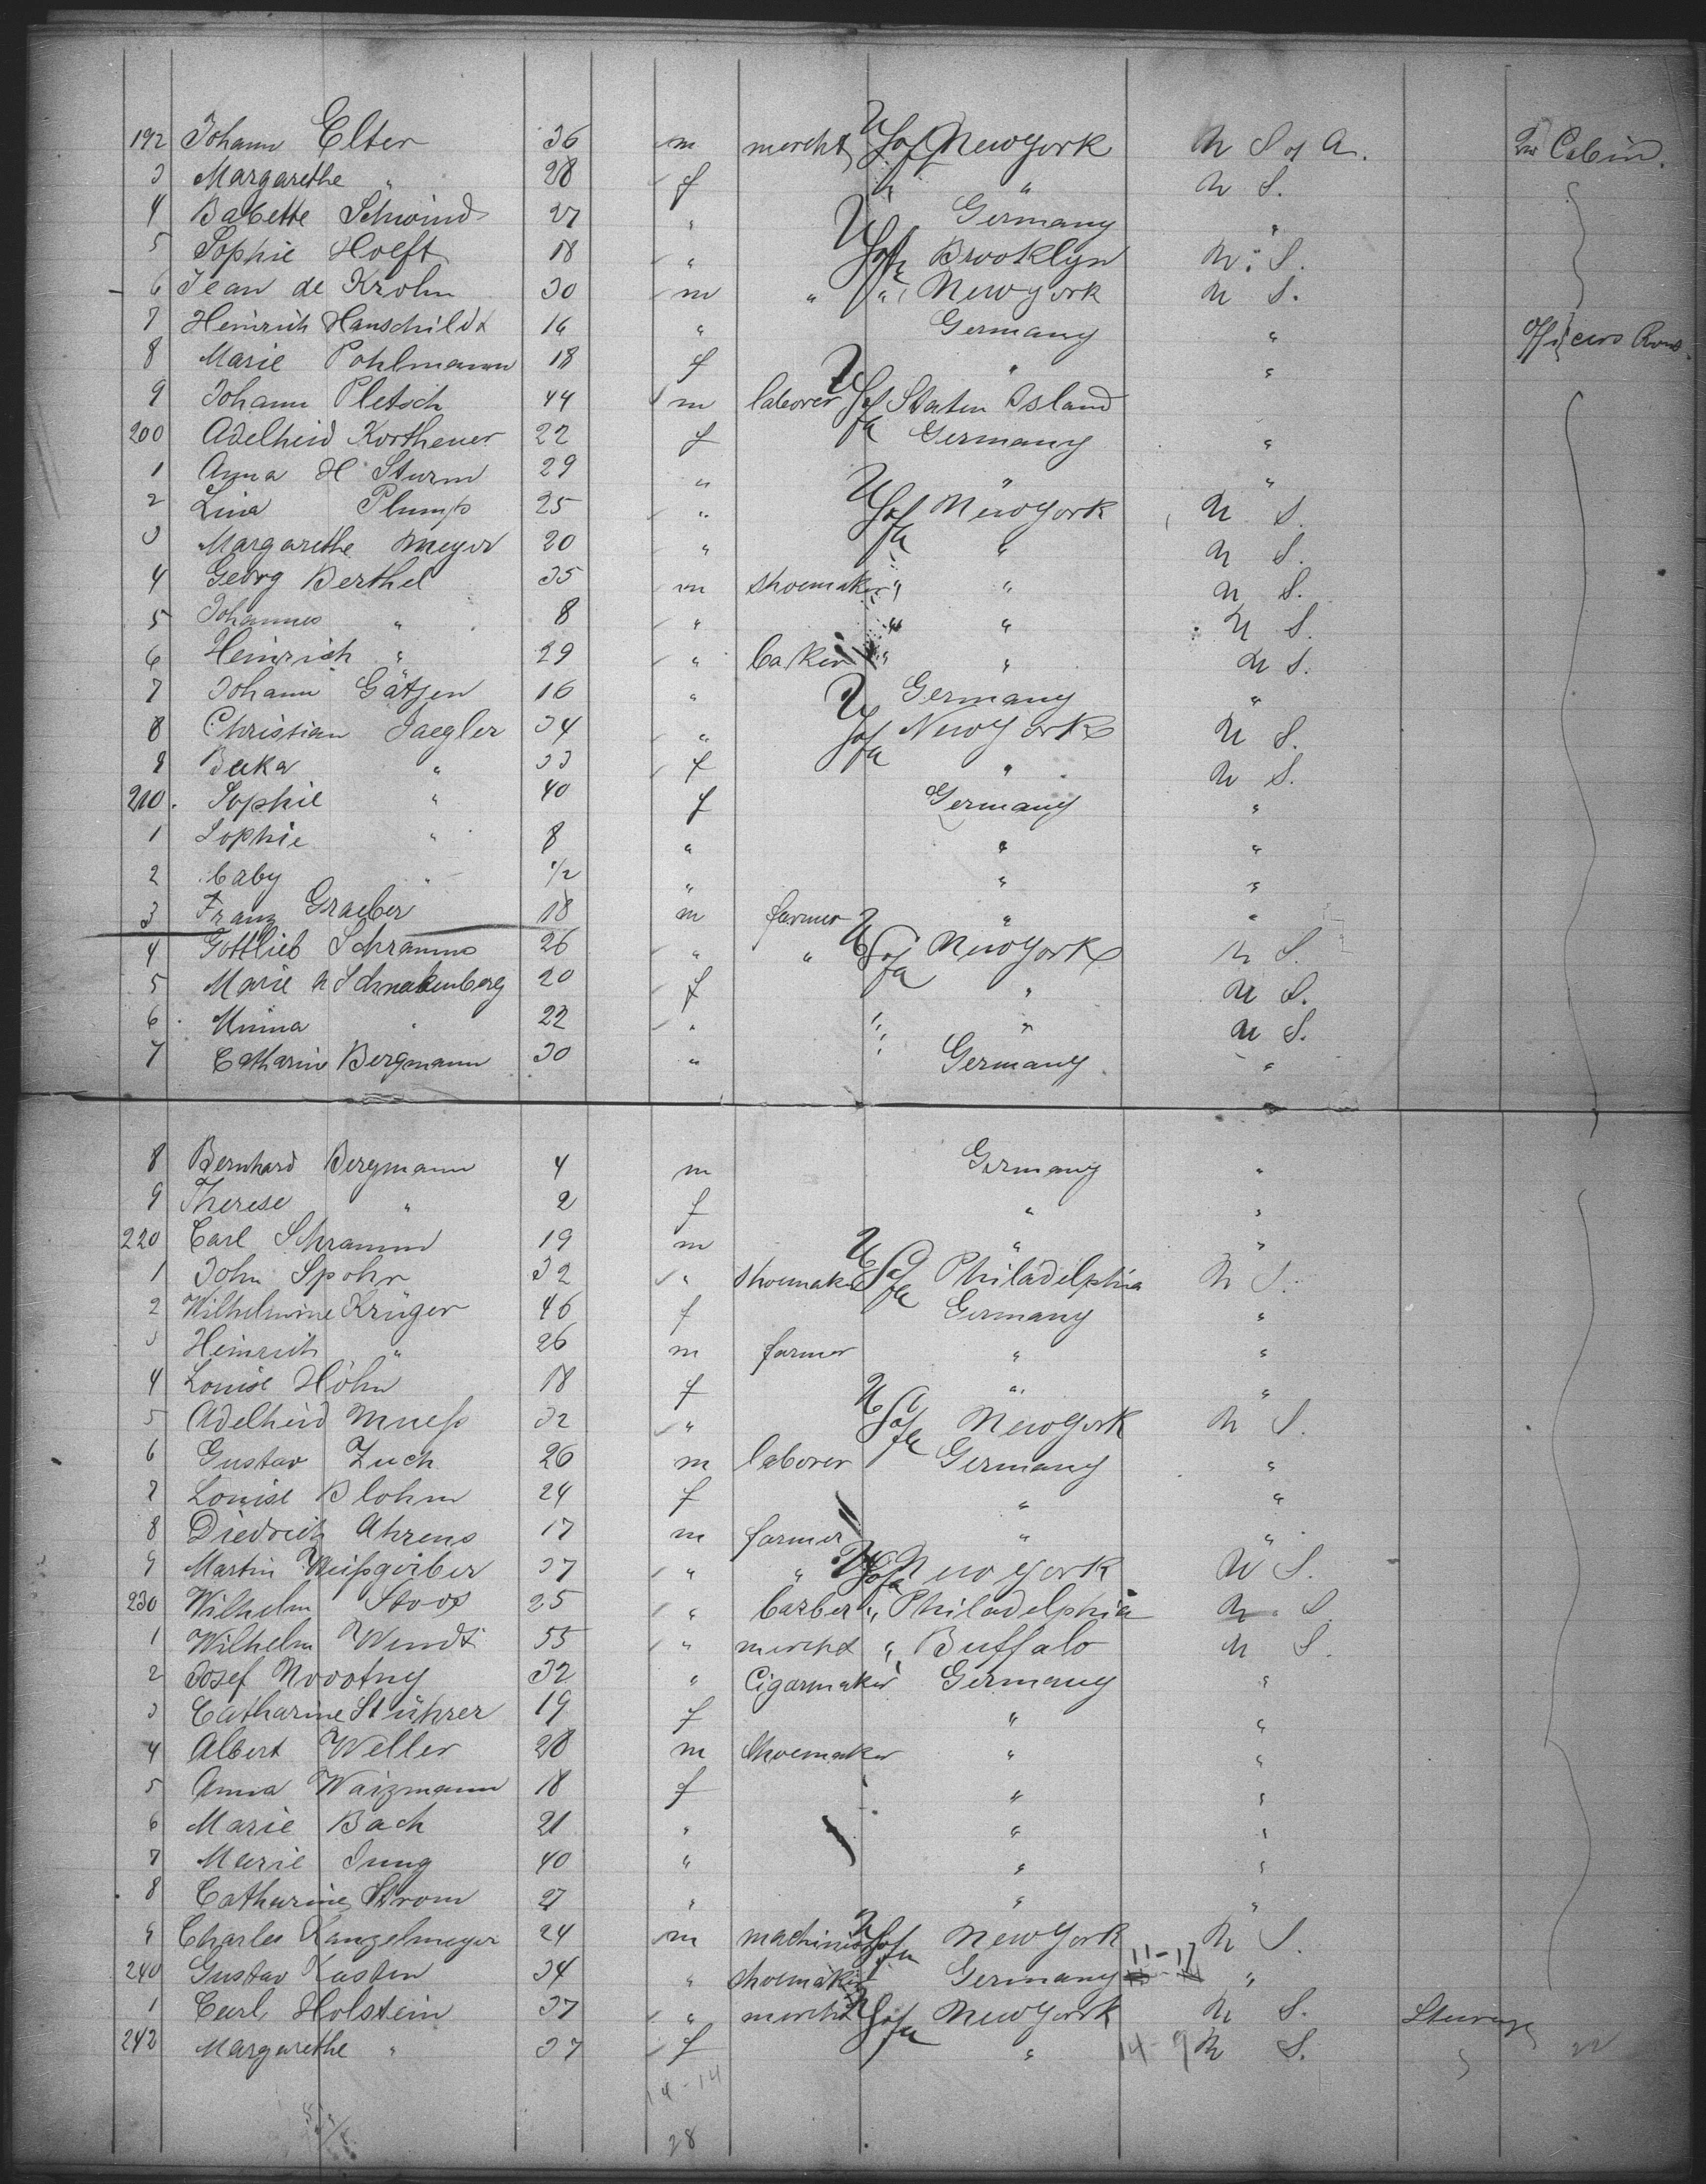 192 Johann Elter 36 m mercht U S of A New York U S of A. In Cabin.
3 Margarethe " 28 f " " U S.
4 Babette Schwind 27 " Germany "
5 Sophie Hoeft 18 " U S of A Brooklyn U. S.
6 Jean de Krohn 30 m " " New York U S.
7 Heinrich Hanschildt 16 " Germany " Officers Room
8 Marie Pohlmann 18 f " "
9 Johann Pletsch 44 m laborer U S of A Staten Island
200 Adelheid Korthener 22 f Germany "
1 Anna H Sturm 29 " " "
2 Lina Plump 25 " U S of A New York U S.
3 Margarethe Meyer 20 " " U S.
4 Georg Berthel 35 m shoemaker " " U S.
5 Johannes " 8 " " " U S.
6 Heinrich " 29 " baker " " U S.
7 Johann Gätjen 16 " Germany "
8 Christian Jaegler 34 " U S of A New York U S.
9 Beka " 33 f " U S.
210. Sophie " 40 f Germany "
1 Sophie " 8 " " "
2 baby " 1/2 " " "
3 Franz Graeber 18 m farmer " "
4 Gottlieb Schramm 26 " " U S of A New York U S.
5 Marie A Schnakenberg 20 f " U S.
6 Minna " 22 " " " U S.
7 Catharine Bergmann 30 " Germany "
8 Bernhard Bergmann 4 m Germany "
9 Therese " 2 f " "
220 Carl Schramm 19 m " "
1 John Spohr 32 " shoemaker U S of A Philadelphia U S.
2 Wilhelmine Krüger 46 f Germany "
3 Heinrich " 26 m farmer " "
4 Louise Höhn 18 f " "
5 Adelheid Muess 32 " U S of A New York U S.
6 Gustav Zuch 26 m laborer Germany "
7 Louise Blohm 24 f " "
8 Diedrich Ahrens 17 m farmer " "
9 Martin Weißgerber 37 " " U S of A New York U S.
230 Wilhelm Stoos 25 " barber " Philadelphia U. S.
1 Wilhelm Wendt 55 " mercht " Buffalo U S.
2 Josef Novotny 32 " Cigarmaker Germany "
3 Catharine Stührer 19 f " "
4 Albert Weller 28 m Shoemaker " "
5 Anna Waizmann 18 f " "
6 Marie Bach 21 " " "
7 Marie Jung 40 " " "
8 Catharine Strom 27 " " "
9 Charles Kanzelmeyer 24 m machinist U S of A New York U S.
240 Gustav Kasten 34 " shoemaker Germany 11-17 "
1 Carl Holstein 37 " mercht U S of A New York U S. Steerage
242 Margarethe " 37 f " 14-9 U S.
14-14
28